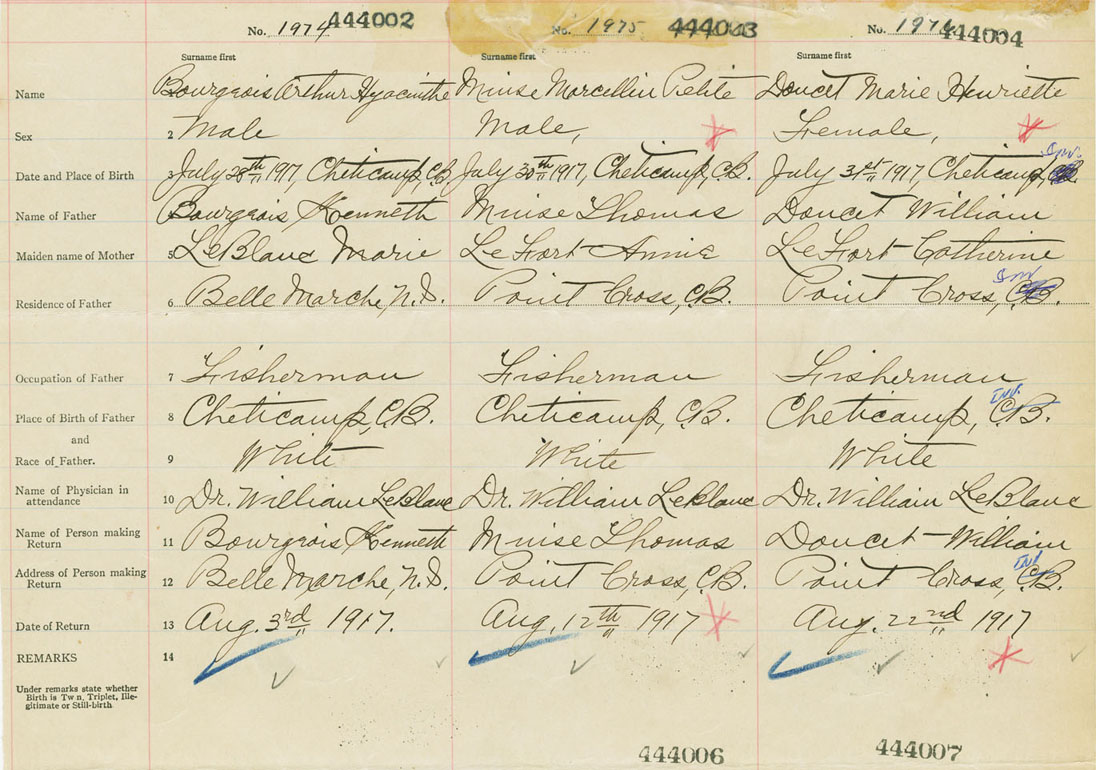 No. 1974 444002 No. 1975 444003 No. 1976 444004
Surname first Surname first Surname first
Name Bourgeois Arthur Hyacinthe Muise Marcellin Pelite Doucet Marie Henriette
Sex 2 Male Male, Female,
Date and Place of Birth 3 July 28th 1917, Cheticamp, C.B. July 30th 1917, Cheticamp, C.B. July 31st 1917, Cheticamp, Inv. C.B.
Name of Father Bourgeois Kenneth Muise Thomas Doucet William
Maiden name of Mother 5 LeBlanc Marie LeFort Annie LeFort Catherine
Residence of Father 6 Belle Marche, N.S. Point Cross, C.B. Point Cross, Inv C.B.
Occupation of Father 7 Fisherman Fisherman Fisherman
Place of Birth of Father 8 Cheticamp, C.B. Cheticamp, C.B. Cheticamp, INV. C.B.
and
Race of Father. 9 White White White
Name of Physician in
attendance 10 Dr. William LeBlanc Dr. William LeBlanc Dr. William LeBlanc
Name of Person making
Return 11 Bourgeois Kenneth Muise Thomas Doucet William
Address of Person making
Return 12 Belle Marche, N.S. Point Cross, C.B. Point Cross, INV C.B.
Date of Return 13 Aug. 3rd 1917. Aug, 12th 1917 Aug. 22nd 1917
REMARKS 14
Under remarks state whether
Birth is Tw n, Triplet, Ille-
gitimate or Still-birth
444006 444007